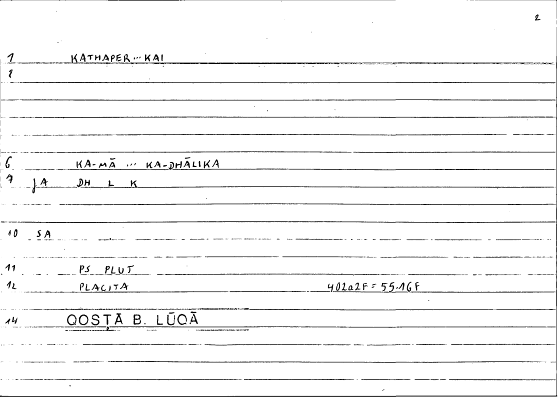 2
1 KATHAPER ... KAI
2
6 KA-MĀ ... KA-DHĀLIKA
7 JA DH L K
10 SA
11 PS PLUT
12 PLACITA 402a2F = 55.16F
14 QOSṬĀ B. LŪQĀ